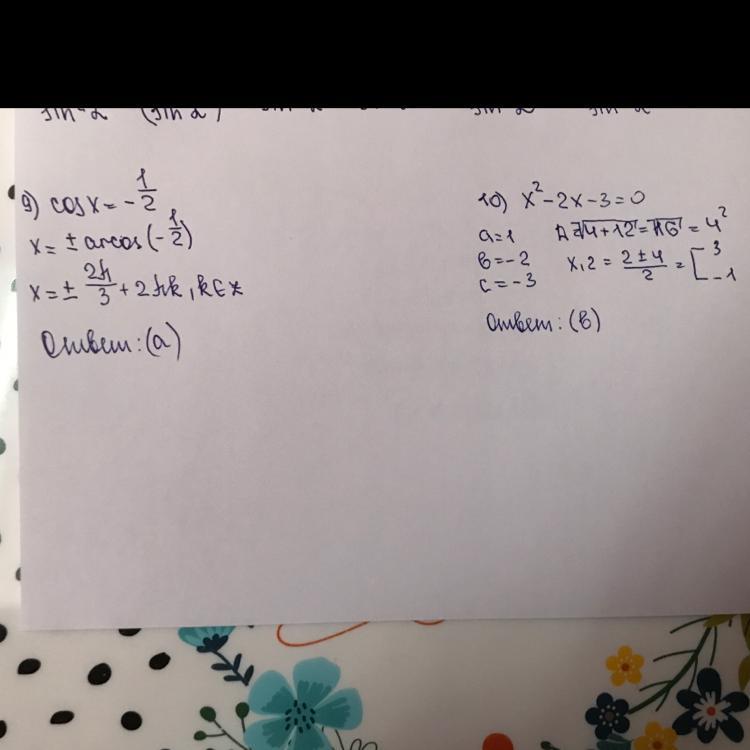 9) cosx = -1/2
x = ± arcos(-1/2)
x = ± 2π/3 + 2πk, k∈z
Ответ: (а)
10) x² - 2x - 3 = 0
a = 1
в = -2
c = -3
Д = √4+12 = √16 = 4²
x,2 = 2±4/2 = [ 3 -1
Ответ: (в)